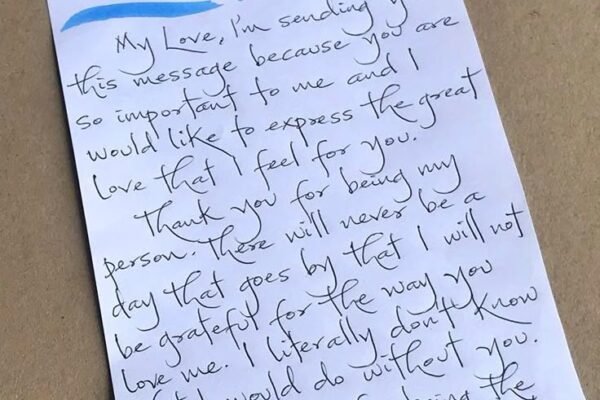 My Love, I'm sending
this message because you are
so important to me and I
would like to express the great
love that I feel for you.
Thank you for being my
person. There will never be a
day that goes by that I will not
be grateful for the way you
love me. I literally don't know
I would do without you.
being the